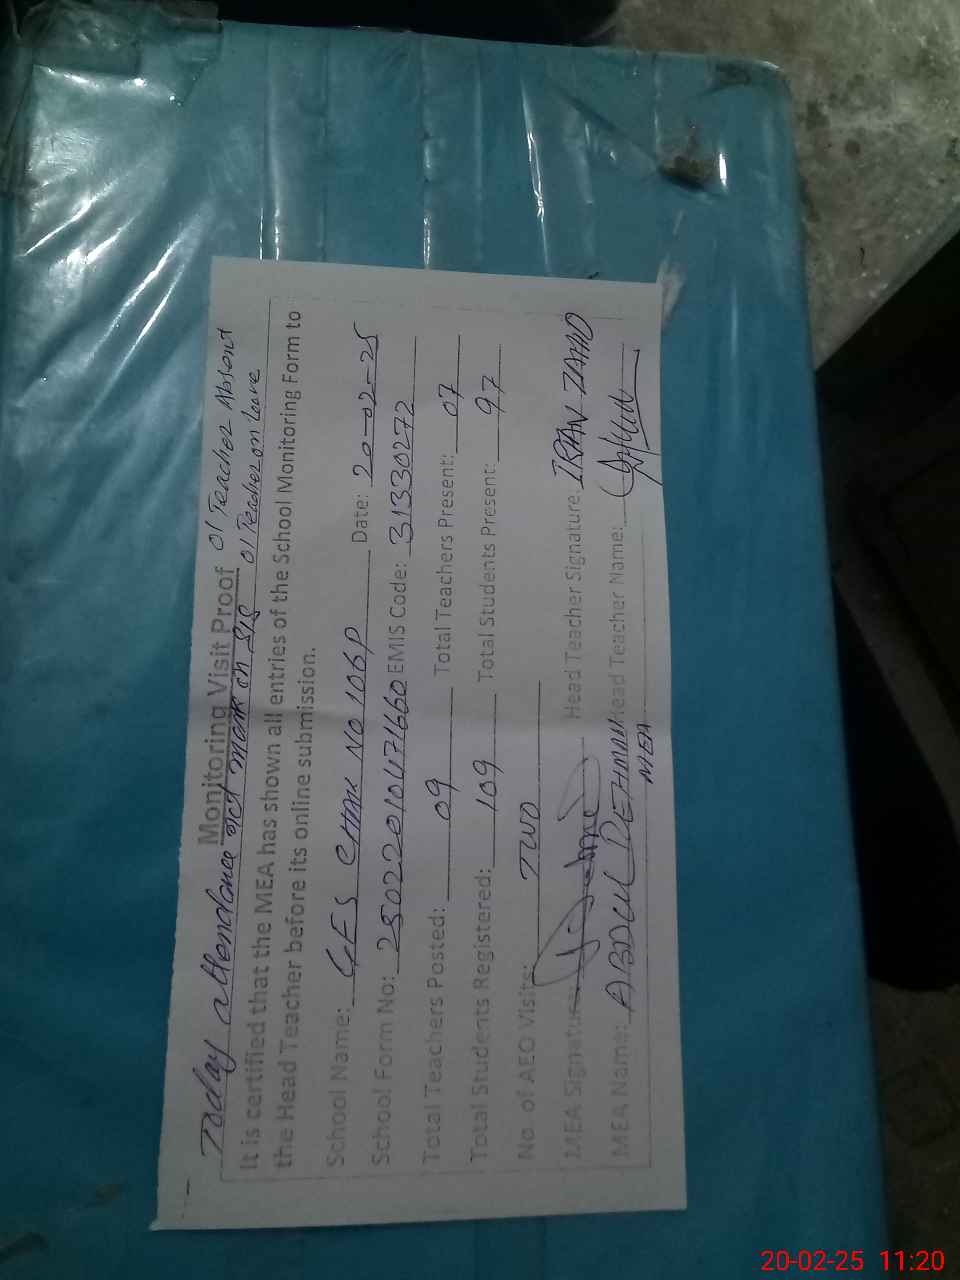 01 Teacher Absent
Monitoring Visit Proof
Today attendance not mark on SIS 01 Teacher on leave
It is certified that the MEA has shown all entries of the School Monitoring Form to
the Head Teacher before its online submission.
School Name: GES CHAK NO 106P Date: 20-02-25
School Form No: EMIS Code: 31330272
Total Teachers Posted: 09 Total Teachers Present: 07
Total Students Registered: 109 Total Students Present: 97
No. of AEO Visits: TWO
MEA Signature: Head Teacher Signature: IRFAN ZAHID
MEA Name: ABDUL REHMAN Head Teacher Name:
MEA
20-02-25 11:20